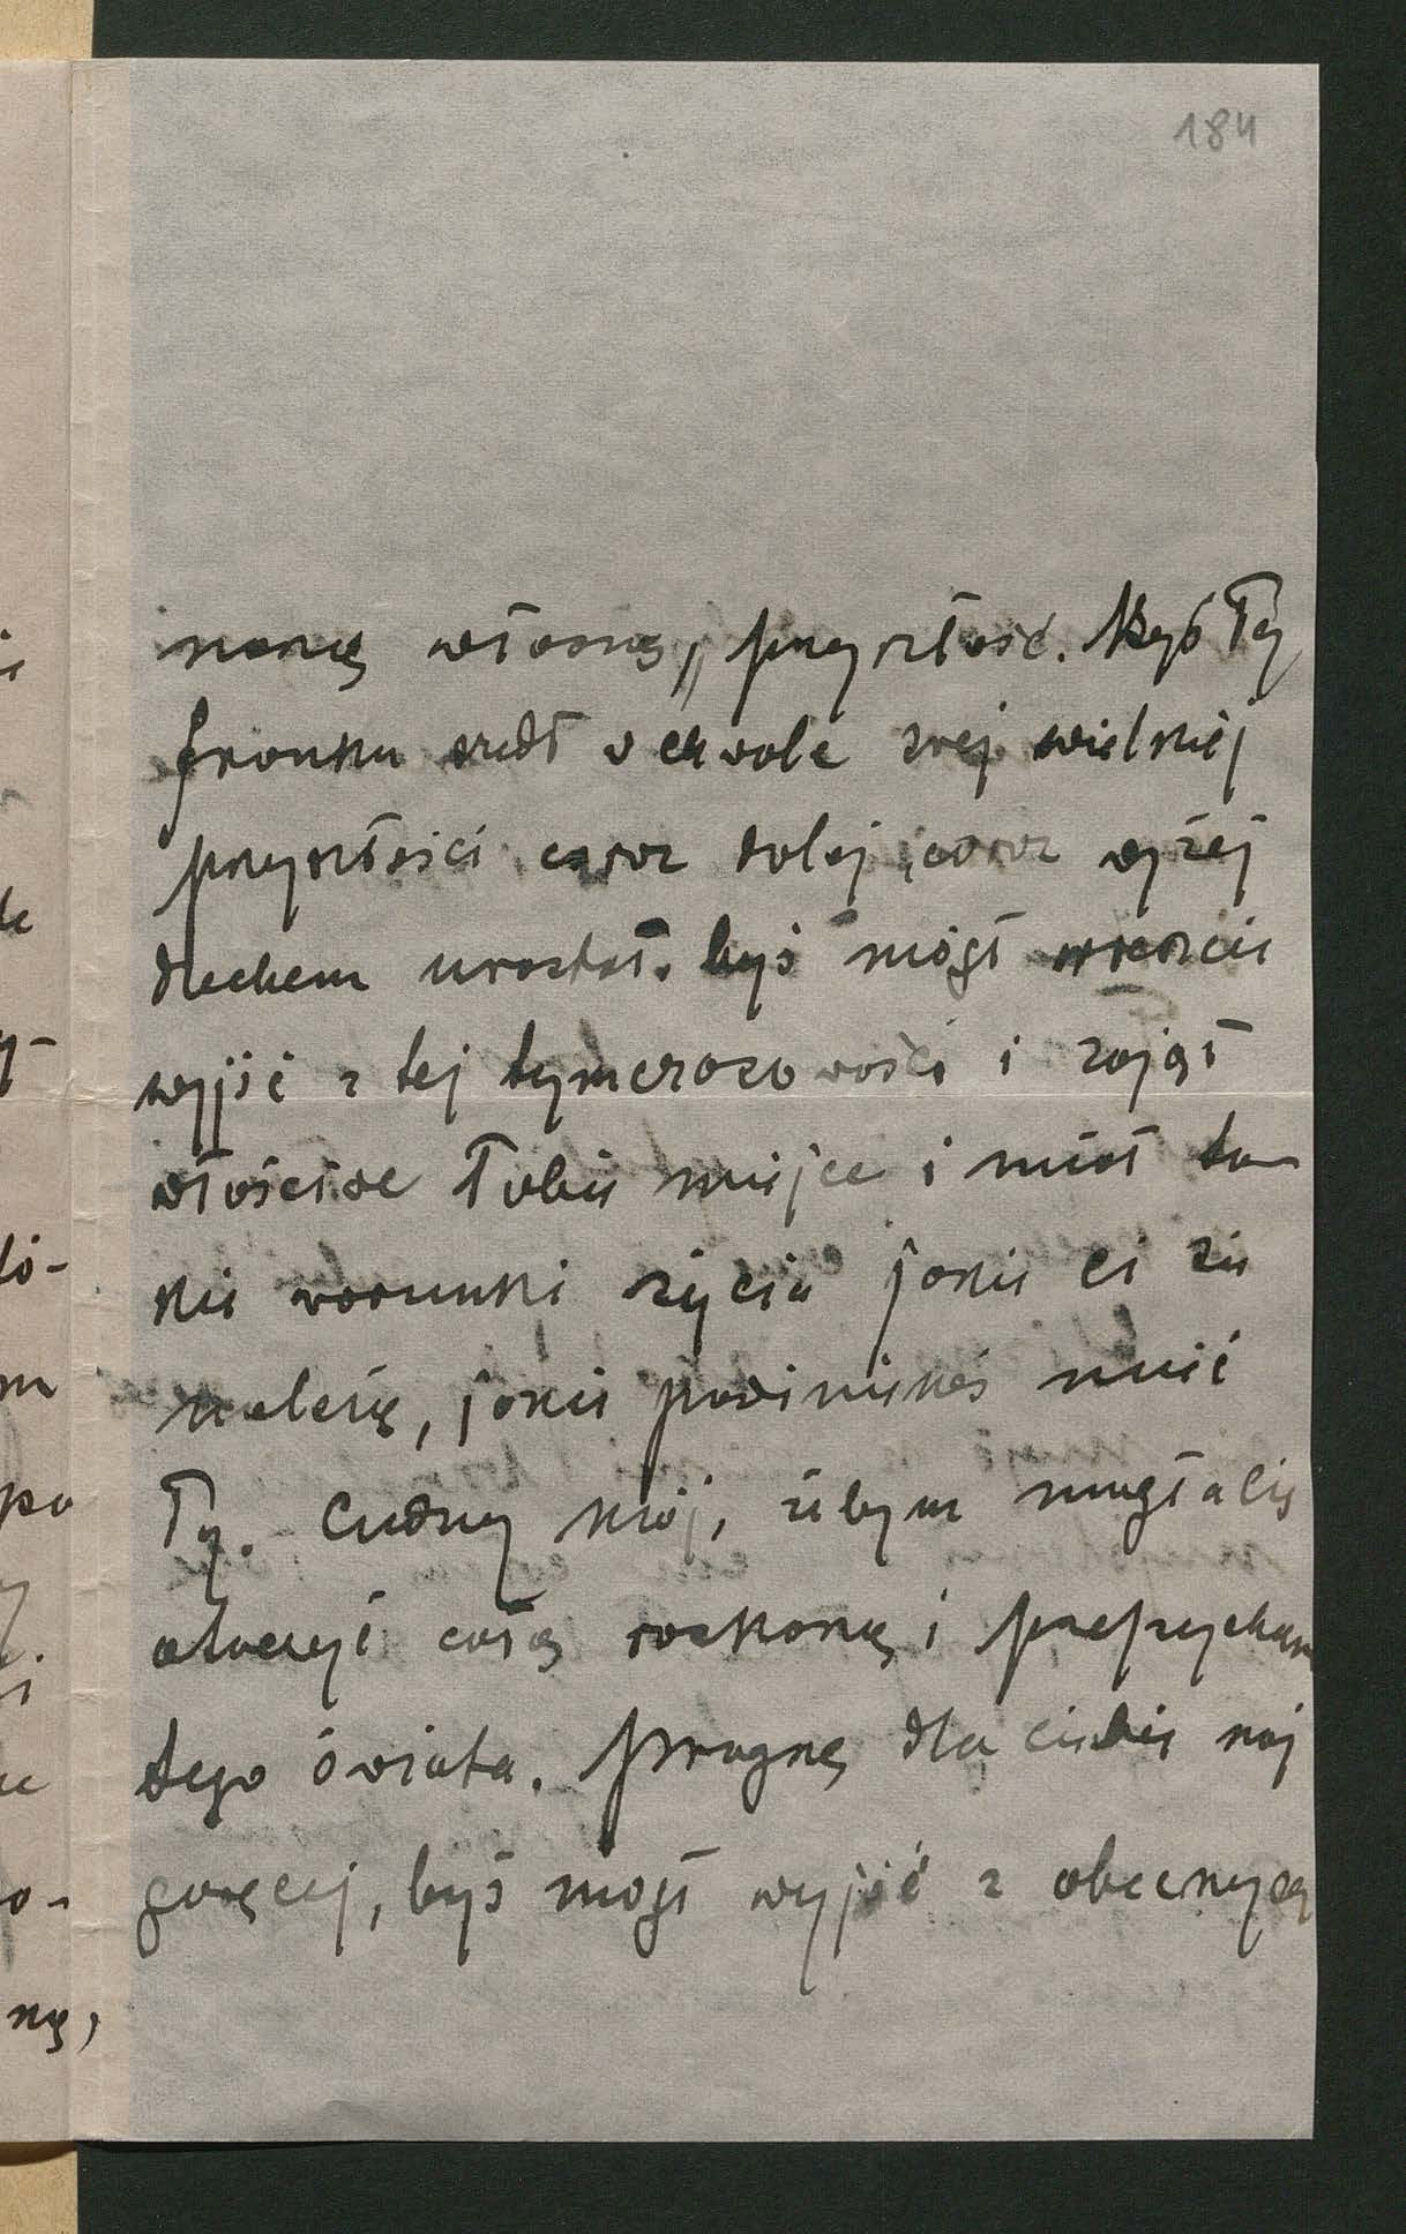 184
naszą własną, przyszłość. Abyś Ty
Franku szedł w chwale swej wielkiej
przyszłości coraz dalej, coraz wyżej
duchem urastał. byś mógł wreszcie
wyjść z tej tymczasowości i zajął
właściwe Tobie miejsce i miał ta-
kie warunki życia jakie ci się
należą, jakie powinieneś mieć
Ty. Cudny mój, żebym mogła cię
otoczyć całą rozkoszą i przepychem
tego świata. Pragnę dla ciebie naj
goręcej, byś mógł wyjść z obecnych